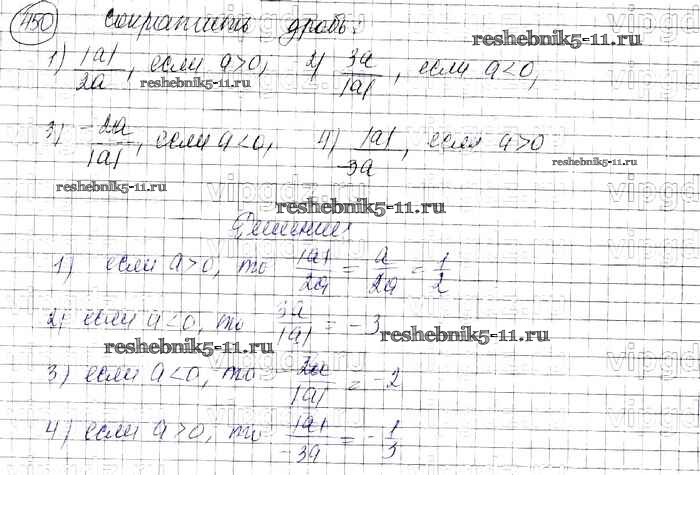 450 Сократить дробь:
reshebnik5-11.ru
1) |a|/2a, если a>0, 2) 3a/|a|, если a<0,
reshebnik5-11.ru
3) -2a/|a|, если a<0, 4) |a|/-3a, если a>0
reshebnik5-11.ru
reshebnik5-11.ru
reshebnik5-11.ru
Решение
1) если a>0, то |a|/2a = a/2a = 1/2
2) если a<0, то 3a/|a| = -3
reshebnik5-11.ru
reshebnik5-11.ru
3) если a<0, то 2a/|a| = -2
4) если a>0, то |a|/-3a = -1/3